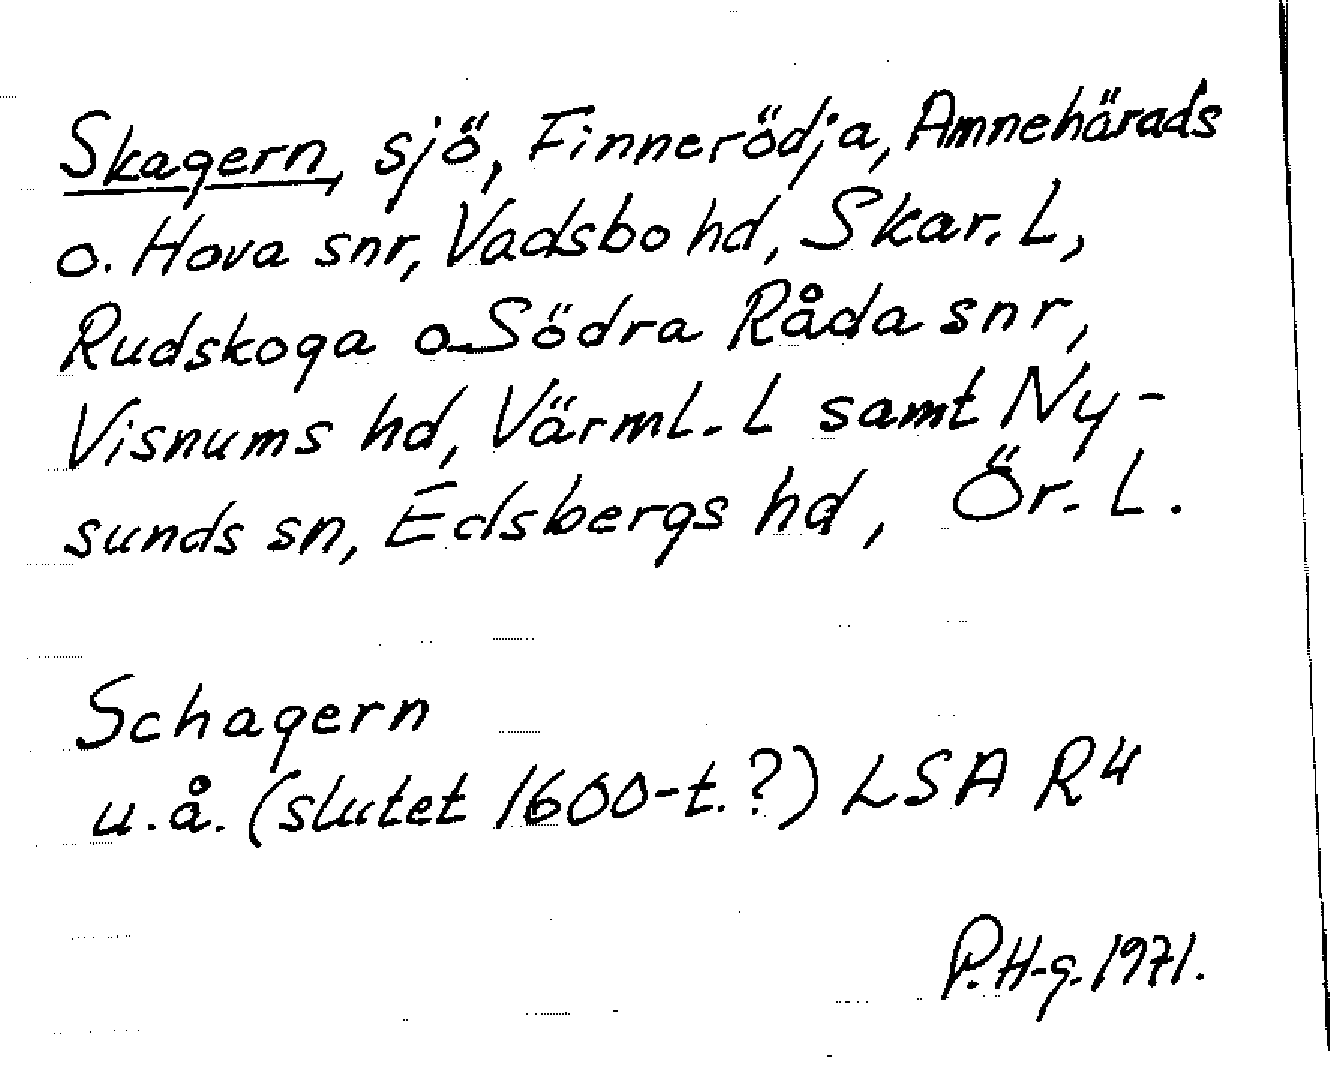 Skagern, sjö, Finnerödja, Amnehärads
o. Hova snr, Vadsbo hd, Skar. L,
Rudskoga o Södra Råda snr,
Visnums hd, Värml. L samt Ny-
sunds sn, Edsbergs hd, Ör. L.
Schagern
u.å. (slutet 1600-t.?) LSA R4
P.H-g. 1971.